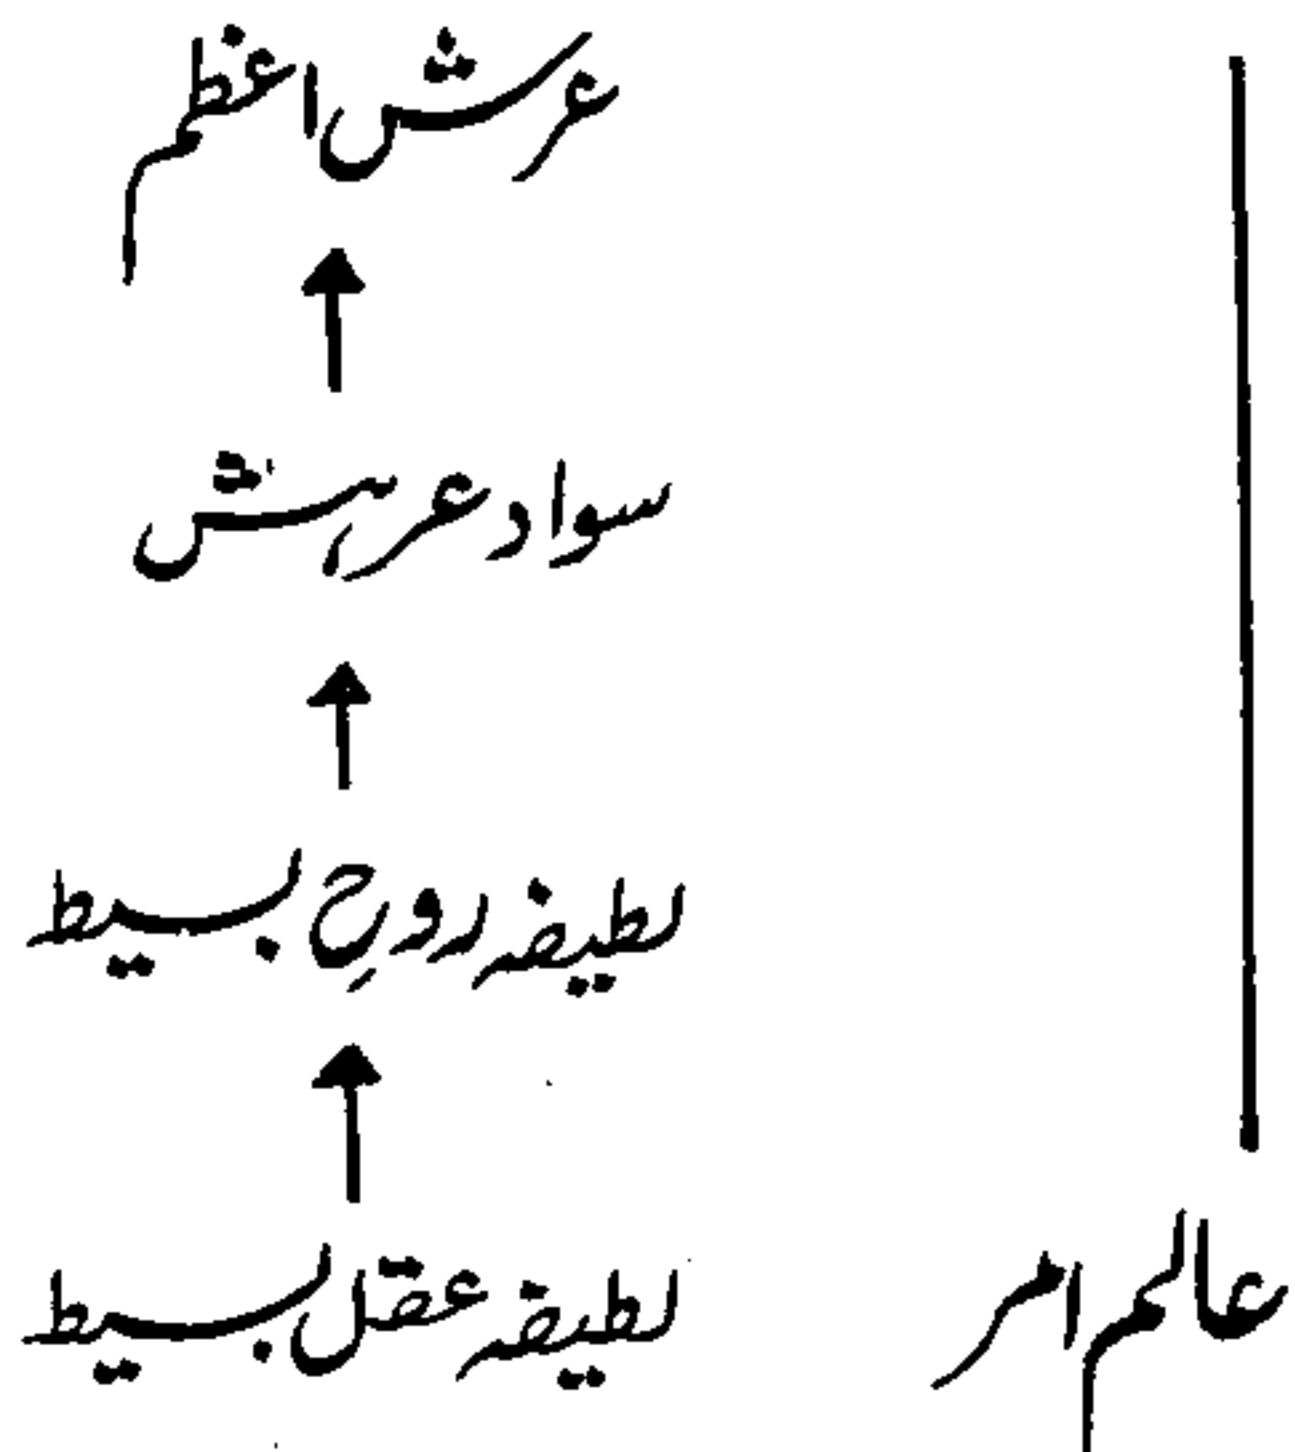 عرش اعظم
سواد عرش
لطیفہ روحِ بسیط
لطیفہ عقل بسیط
عالم امر